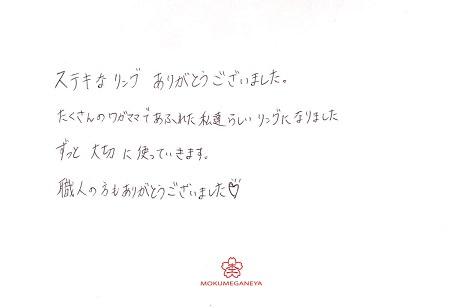 ステキなリング ありがとうございました。
たくさんのワガママであふれた私達らしいリングになりました
ずっと大切に使っていきます。
職人の方もありがとうございました♡
MOKUMEGANEYA